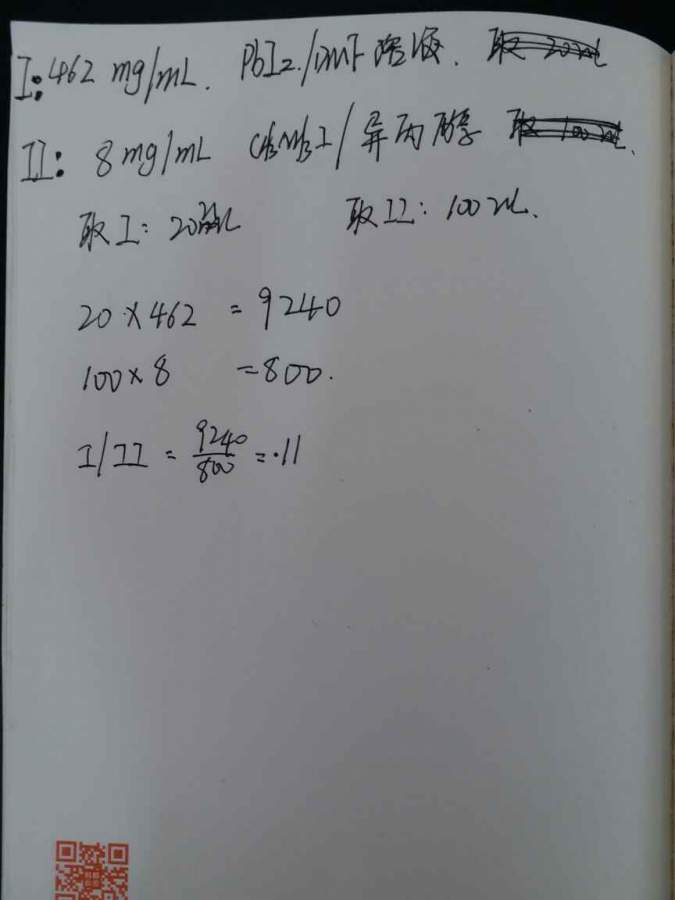 I: 462 mg/mL. PbI2/DMF 溶液. 取 20 mL
II: 8 mg/mL CH3NH3I / 异丙醇 取 100 mL.
取 I: 20 mL 取 II: 100 mL.
20 × 462 = 9240
100 × 8 = 800.
I/II = 9240/800 = .11